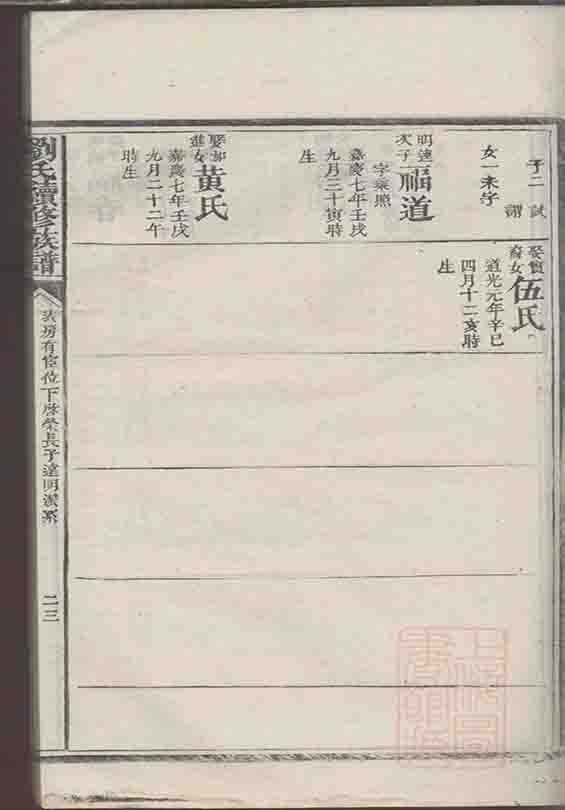 子二試
謂
女一未字
明達次子福道
字秉照
嘉慶七年壬戌
九月三十寅時
生
娶
進女黃氏
嘉慶七年壬戌
九月二十二午
時生
娶賢
裔女伍氏
道光元年辛巳
四月十二亥時
生
劉氏續修族譜
房有宦位下啓榮長子達明派系
二三